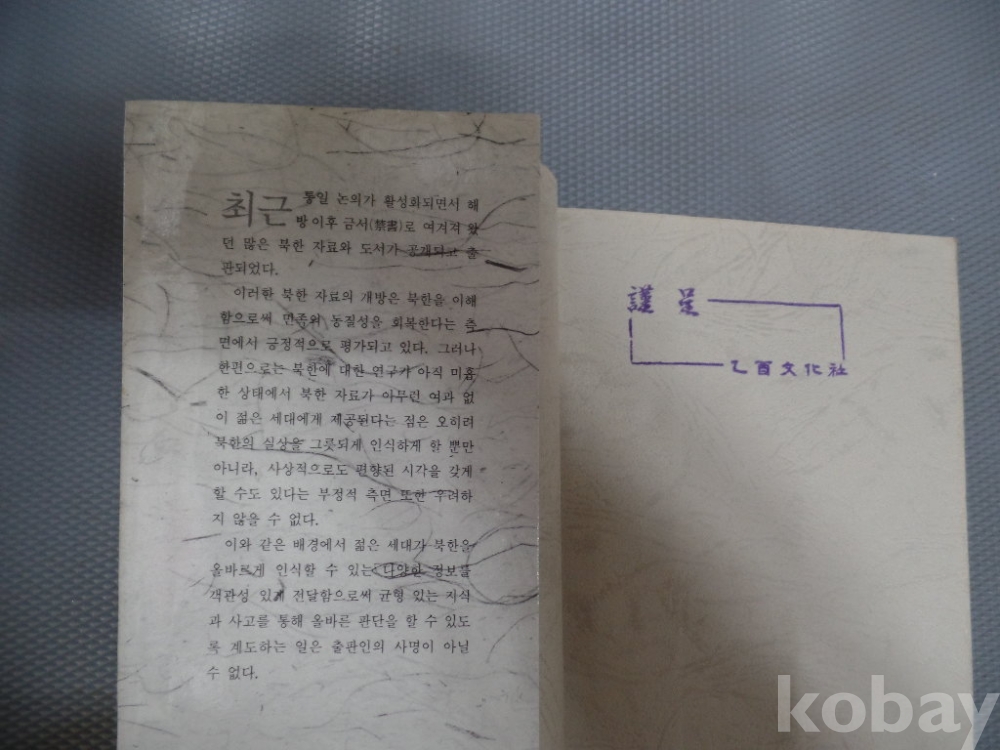 최근 통일 논의가 활성화되면서 해
방 이후 금서(禁書)로 여겨져 왔
던 많은 북한 자료와 도서가 공개되고 출
판되었다.
이러한 북한 자료의 개방은 북한을 이해
함으로써 민족의 동질성을 회복한다는 측
면에서 긍정적으로 평가되고 있다. 그러나
한편으로는 북한에 대한 연구가 아직 미흡
한 상태에서 북한 자료가 아무런 여과 없
이 젊은 세대에게 제공된다는 점은 오히려
북한의 실상을 그릇되게 인식하게 할 뿐만
아니라, 사상적으로도 편향된 시각을 갖게
할 수도 있다는 부정적 측면 또한 우려하
지 않을 수 없다.
이와 같은 배경에서 젊은 세대가 북한을
올바르게 인식할 수 있는 다양한 정보를
객관성 있게 전달함으로써 균형 있는 지식
과 사고를 통해 올바른 판단을 할 수 있도
록 계도하는 일은 출판인의 사명이 아닐
수 없다.
謹呈
乙酉文化社
kobay